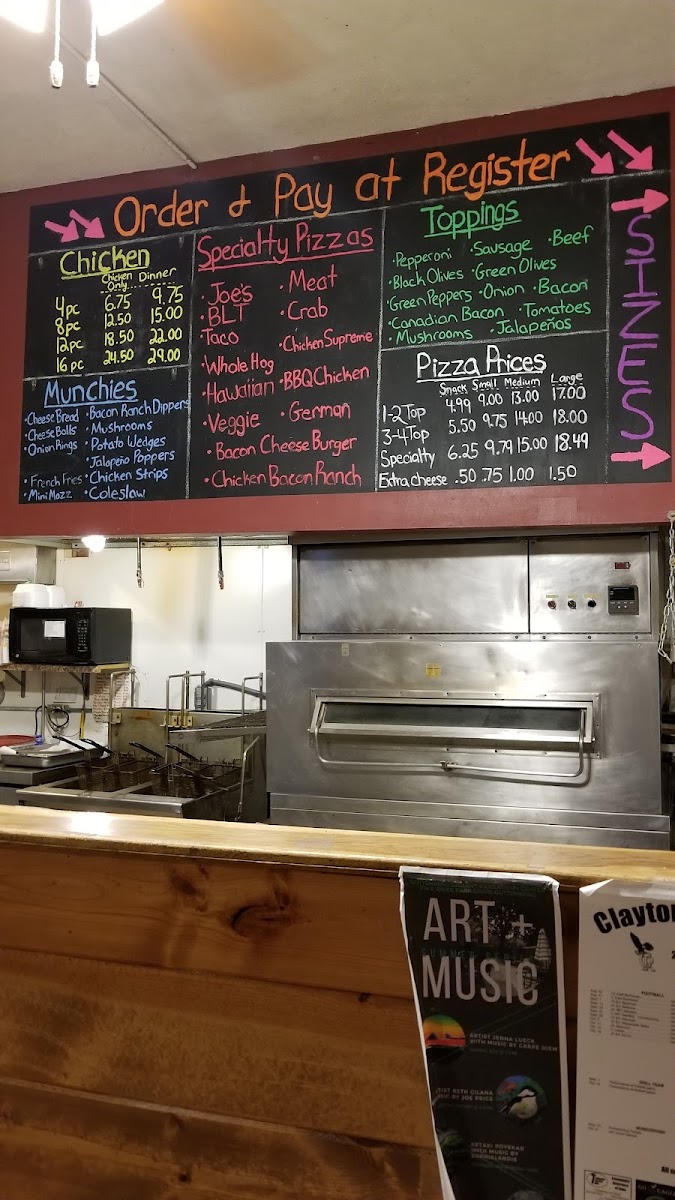 Order & Pay at Register
Chicken
Chicken Only Dinner
4pc 6.75 9.75
8pc 12.50 15.00
12pc 18.50 22.00
16 pc 24.50 29.00
Munchies
• Cheese Bread
• Cheese Balls
• Onion Rings
• French Fries
• Mini Mozz
• Bacon Ranch Dippers
• Mushrooms
• Potato Wedges
• Jalapeño Poppers
• Chicken Strips
• Coleslaw
Specialty Pizzas
• Joe's
• BLT
• Taco
• Whole Hog
• Hawaiian
• Veggie
• Meat
• Crab
• Chicken Supreme
• BBQ Chicken
• German
• Bacon Cheese Burger
• Chicken Bacon Ranch
Toppings
• Pepperoni • Sausage • Beef
• Black Olives • Green Olives
• Green Peppers • Onion • Bacon
• Canadian Bacon • Tomatoes
• Mushrooms • Jalapeños
Pizza Prices
Snack Small Medium Large
1-2 Top 4.99 9.00 13.00 17.00
3-4 Top 5.50 9.75 14.00 18.00
Specialty 6.25 9.79 15.00 18.49
Extra cheese .50 .75 1.00 1.50
SIZES
ART +
MUSIC
ARTIST JENNA LUECK
WITH MUSIC BY CARPE DIEM
BY JOE PRICE
WITH MUSIC BY
Clayto
FOOTBALL
DRILL TEAM